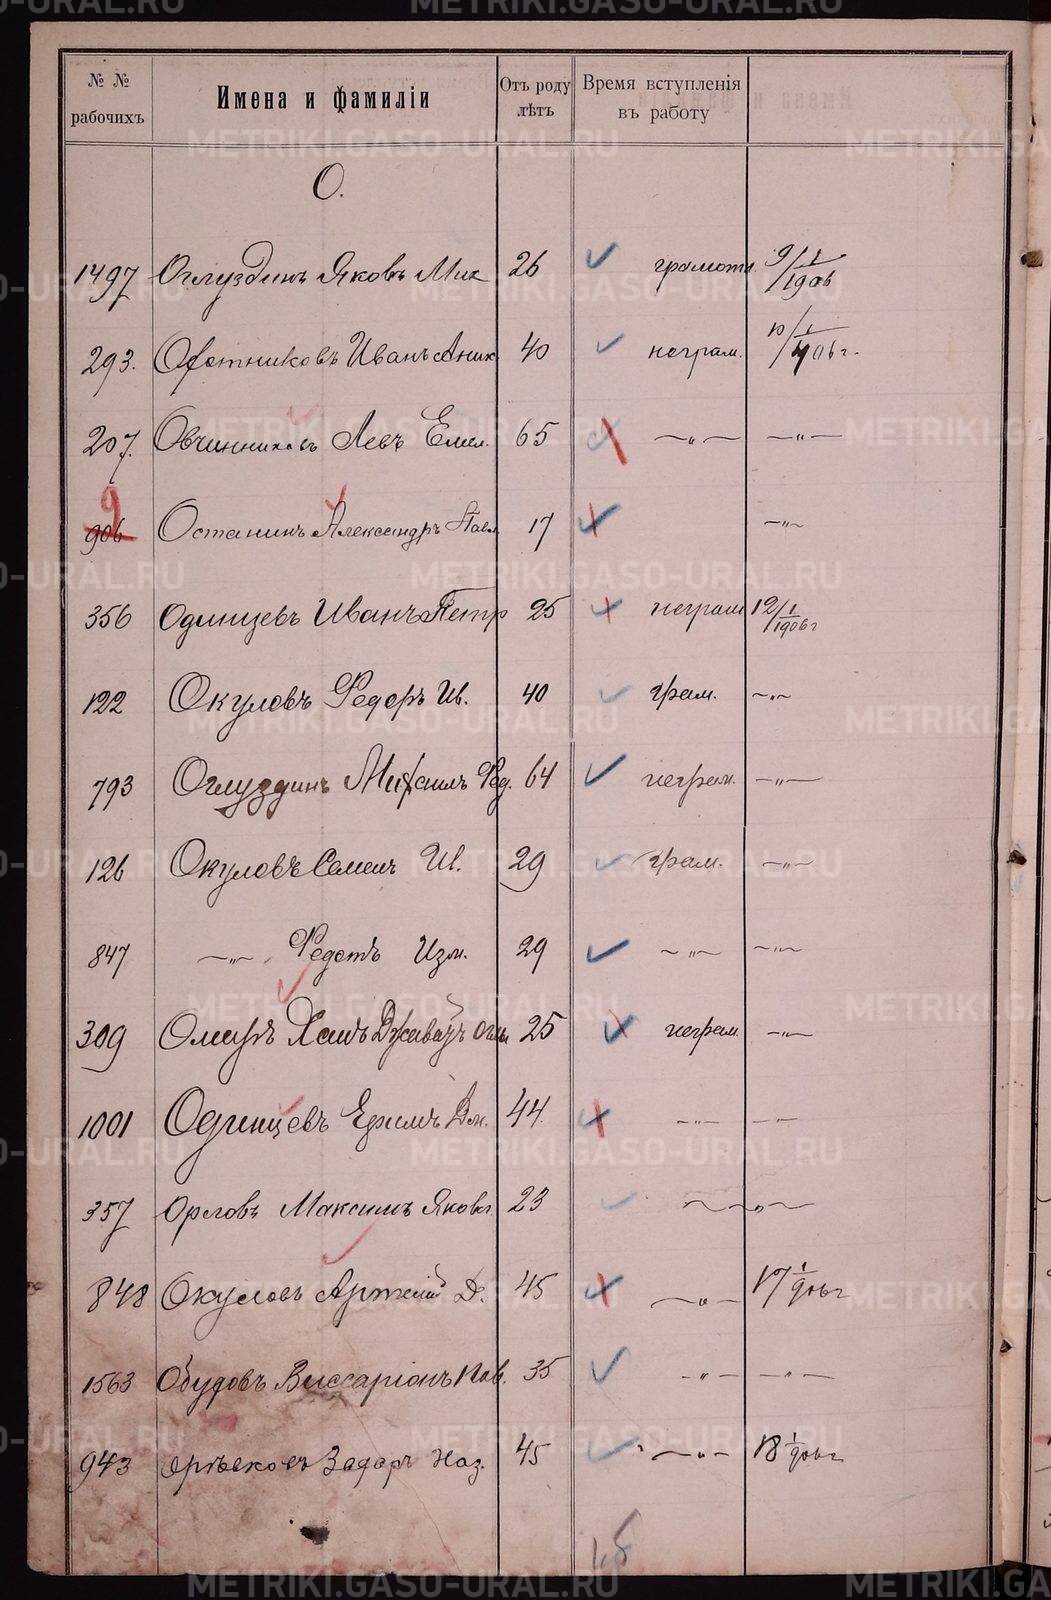 № № рабочихъ Имена и фамиліи Отъ роду лѣтъ Время вступленія въ работу
О.
1497 Оглуздинъ Яковъ Мих 26 грамотн. 9/1 1906
293. Иванъ Аник 40 неграм. 10/1 1906 г.
207. Овчинниковъ Левъ Емел. 65 —„— —„—
906 9 Останинъ Александръ Павл 17 —„—
356 Одинцевъ Иванъ Петр 25 неграм 12/1 1906 г
122 Окуловъ Федоръ Ив. 40 грам. —„—
793 Оглуздинъ Михаилъ Фед. 64 неграм. —„—
126 Окуловъ Семенъ Ив. 29 грам. —„—
847 —„— Федотъ Изм. 29 —„— —„—
309 Омаръ оглы 25 неграм —„—
1001 Одинцевъ Ефимъ Дм. 44. —„— —„—
357 Орловъ Максимъ Яковл. 23 —„—
848 Окуловъ Артемій Д. 45 —„— 17/1 906 г
1563 Обудовъ Виссаріонъ Пав. 35 —„— —„—
943 Наз. 45 —„— 18 1/906 г
METRIKI.GASO-URAL.RU